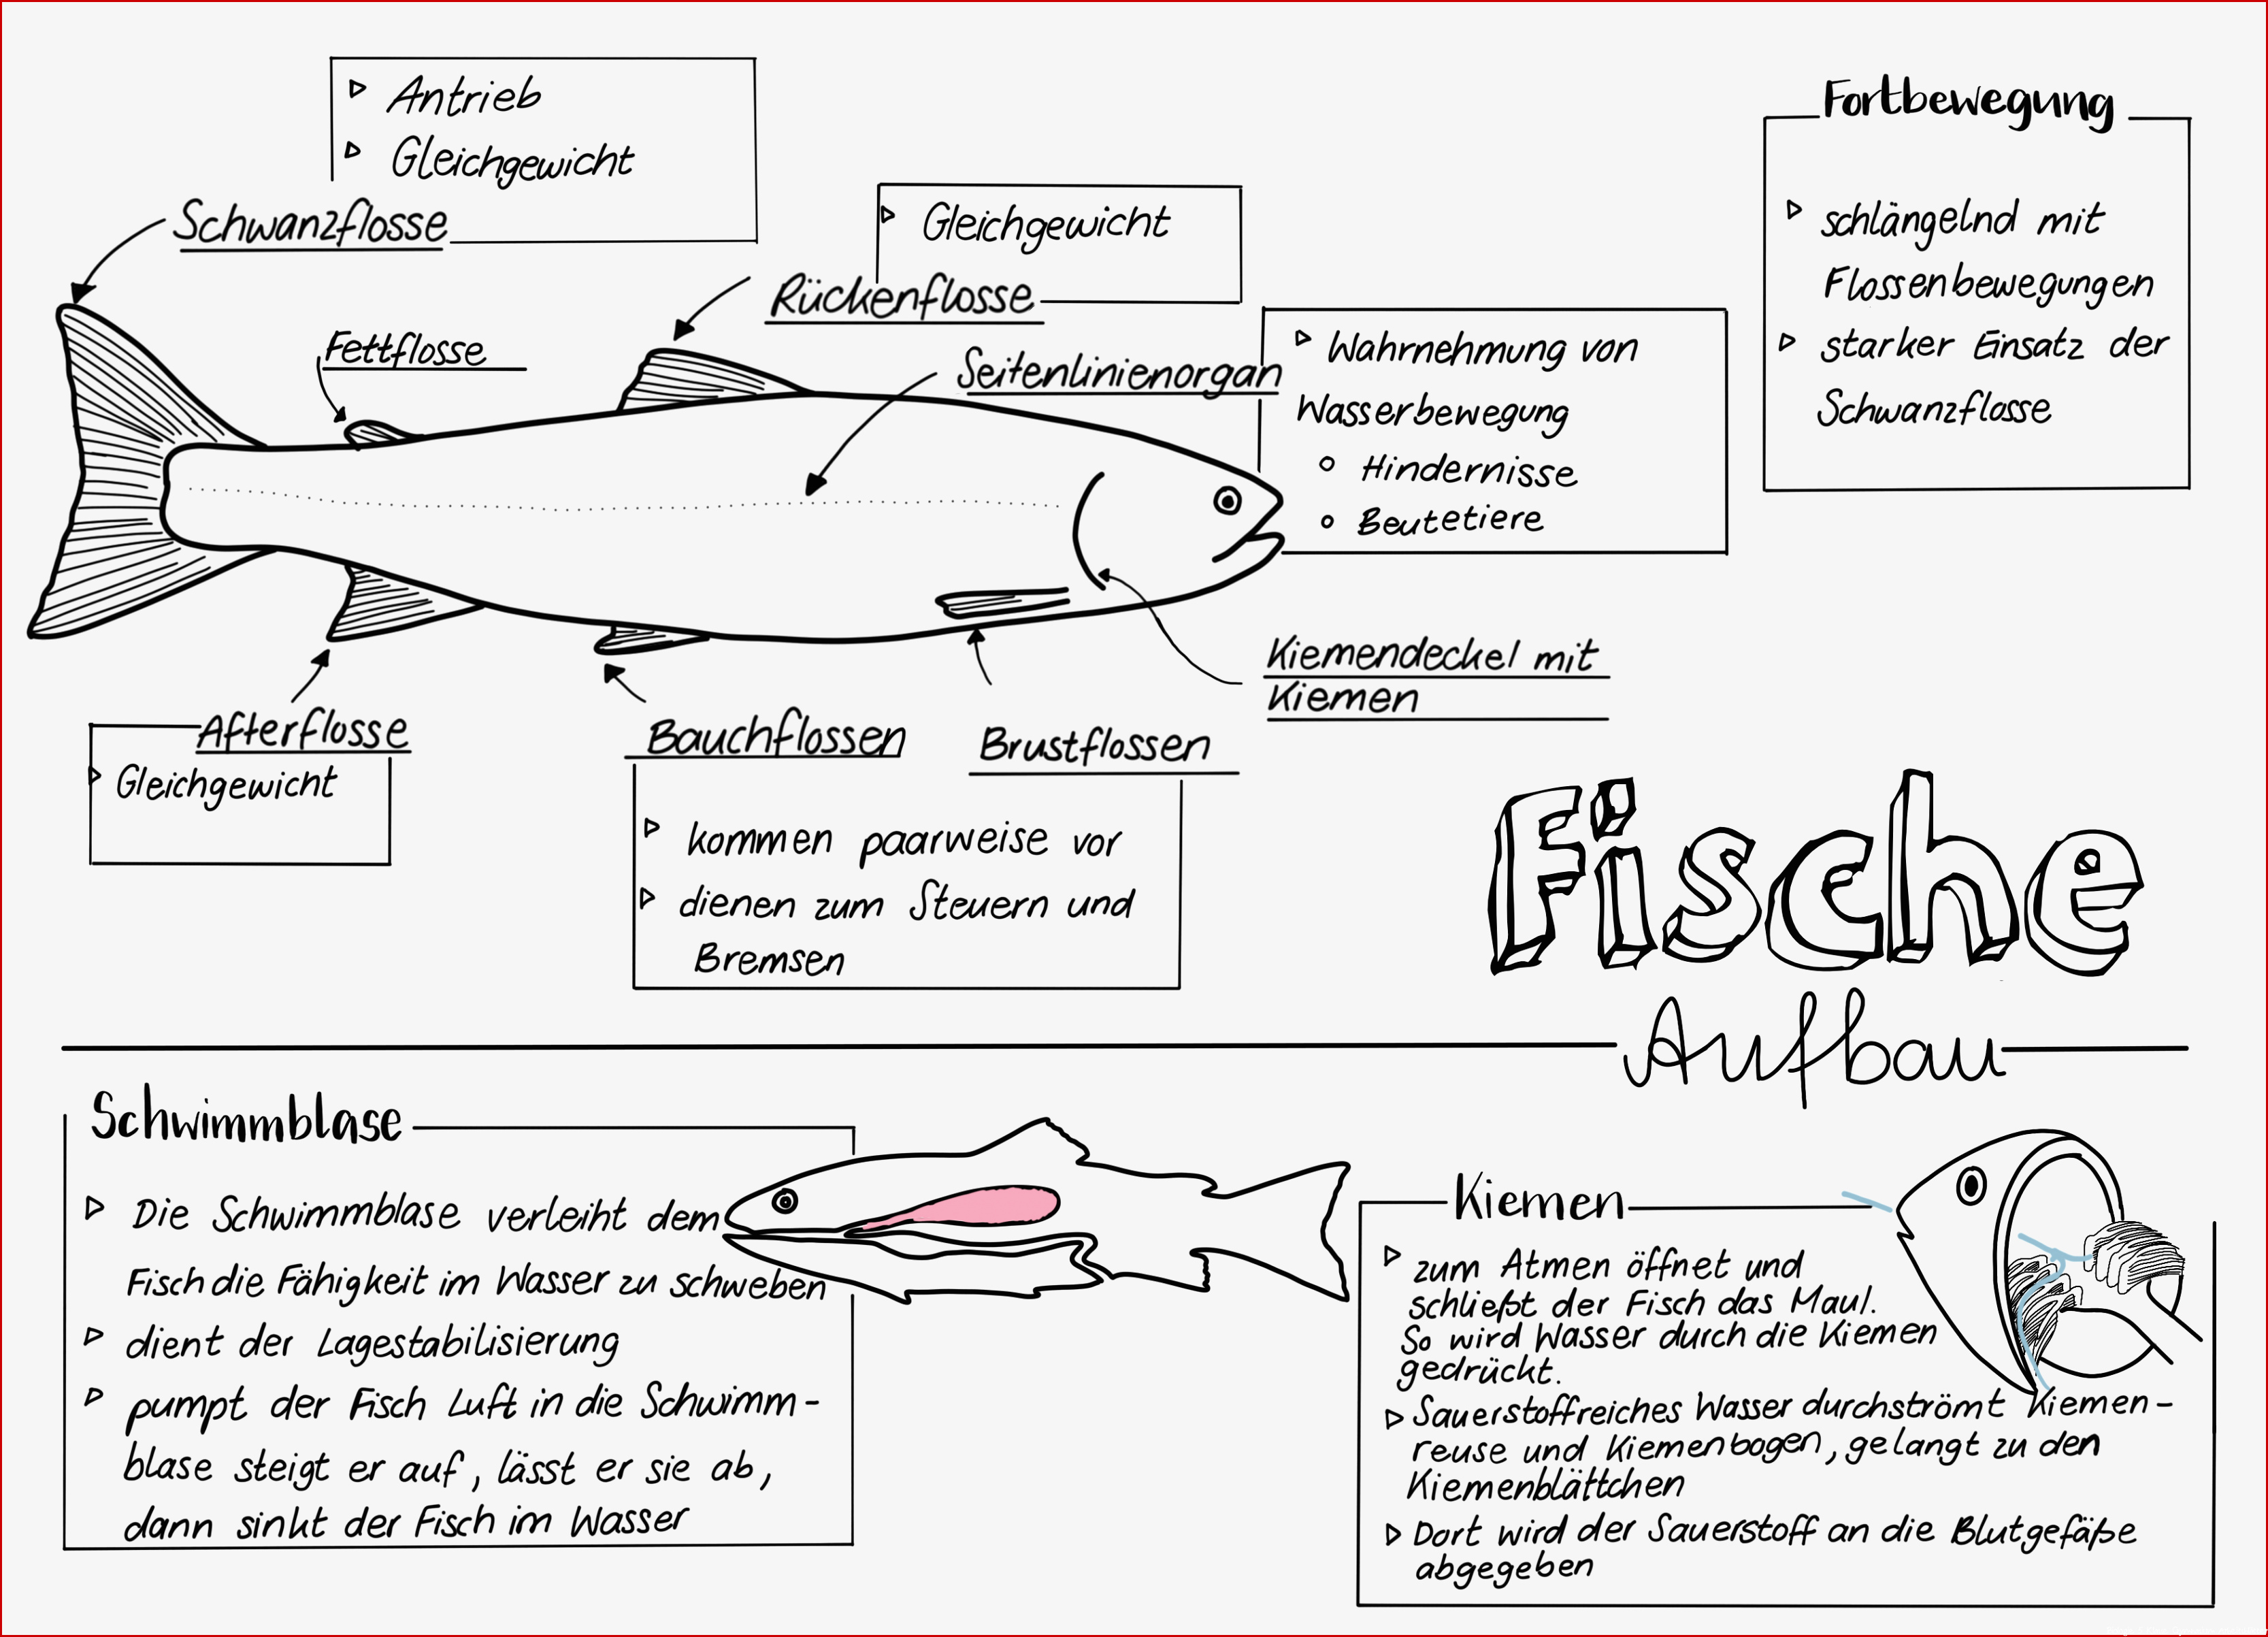 Antrieb
Gleichgewicht
Schwanzflosse
Gleichgewicht
Rückenflosse
Fettflosse
Seitenlinienorgan
Wahrnehmung von
Wasserbewegung
Hindernisse
Beutetiere
Fortbewegung
schlängelnd mit
Flossenbewegungen
starker Einsatz der
Schwanzflosse
Kiemendeckel mit
Kiemen
Afterflosse
Gleichgewicht
Bauchflossen
Brustflossen
kommen paarweise vor
dienen zum Steuern und
Bremsen
Fische
Aufbau
Schwimmblase
Die Schwimmblase verleiht dem
Fisch die Fähigkeit im Wasser zu schweben
dient der Lagestabilisierung
pumpt der Fisch Luft in die Schwimm-
blase steigt er auf, lässt er sie ab,
dann sinkt der Fisch im Wasser
Kiemen
zum Atmen öffnet und
schließt der Fisch das Maul.
So wird Wasser durch die Kiemen
gedrückt.
Sauerstoffreiches Wasser durchströmt Kiemen-
reuse und Kiemenbogen, gelangt zu den
Kiemenblättchen
Dort wird der Sauerstoff an die Blutgefäße
abgegeben